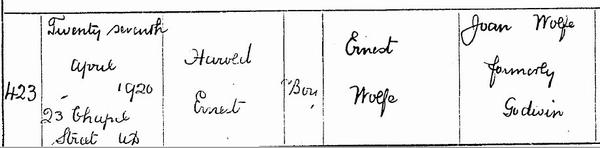 423
Twenty seventh
April
1920
23 Chapel
Street UD
Harold
Ernest
Boy
Ernest
Wolfe
Joan Wolfe
formerly
Godwin